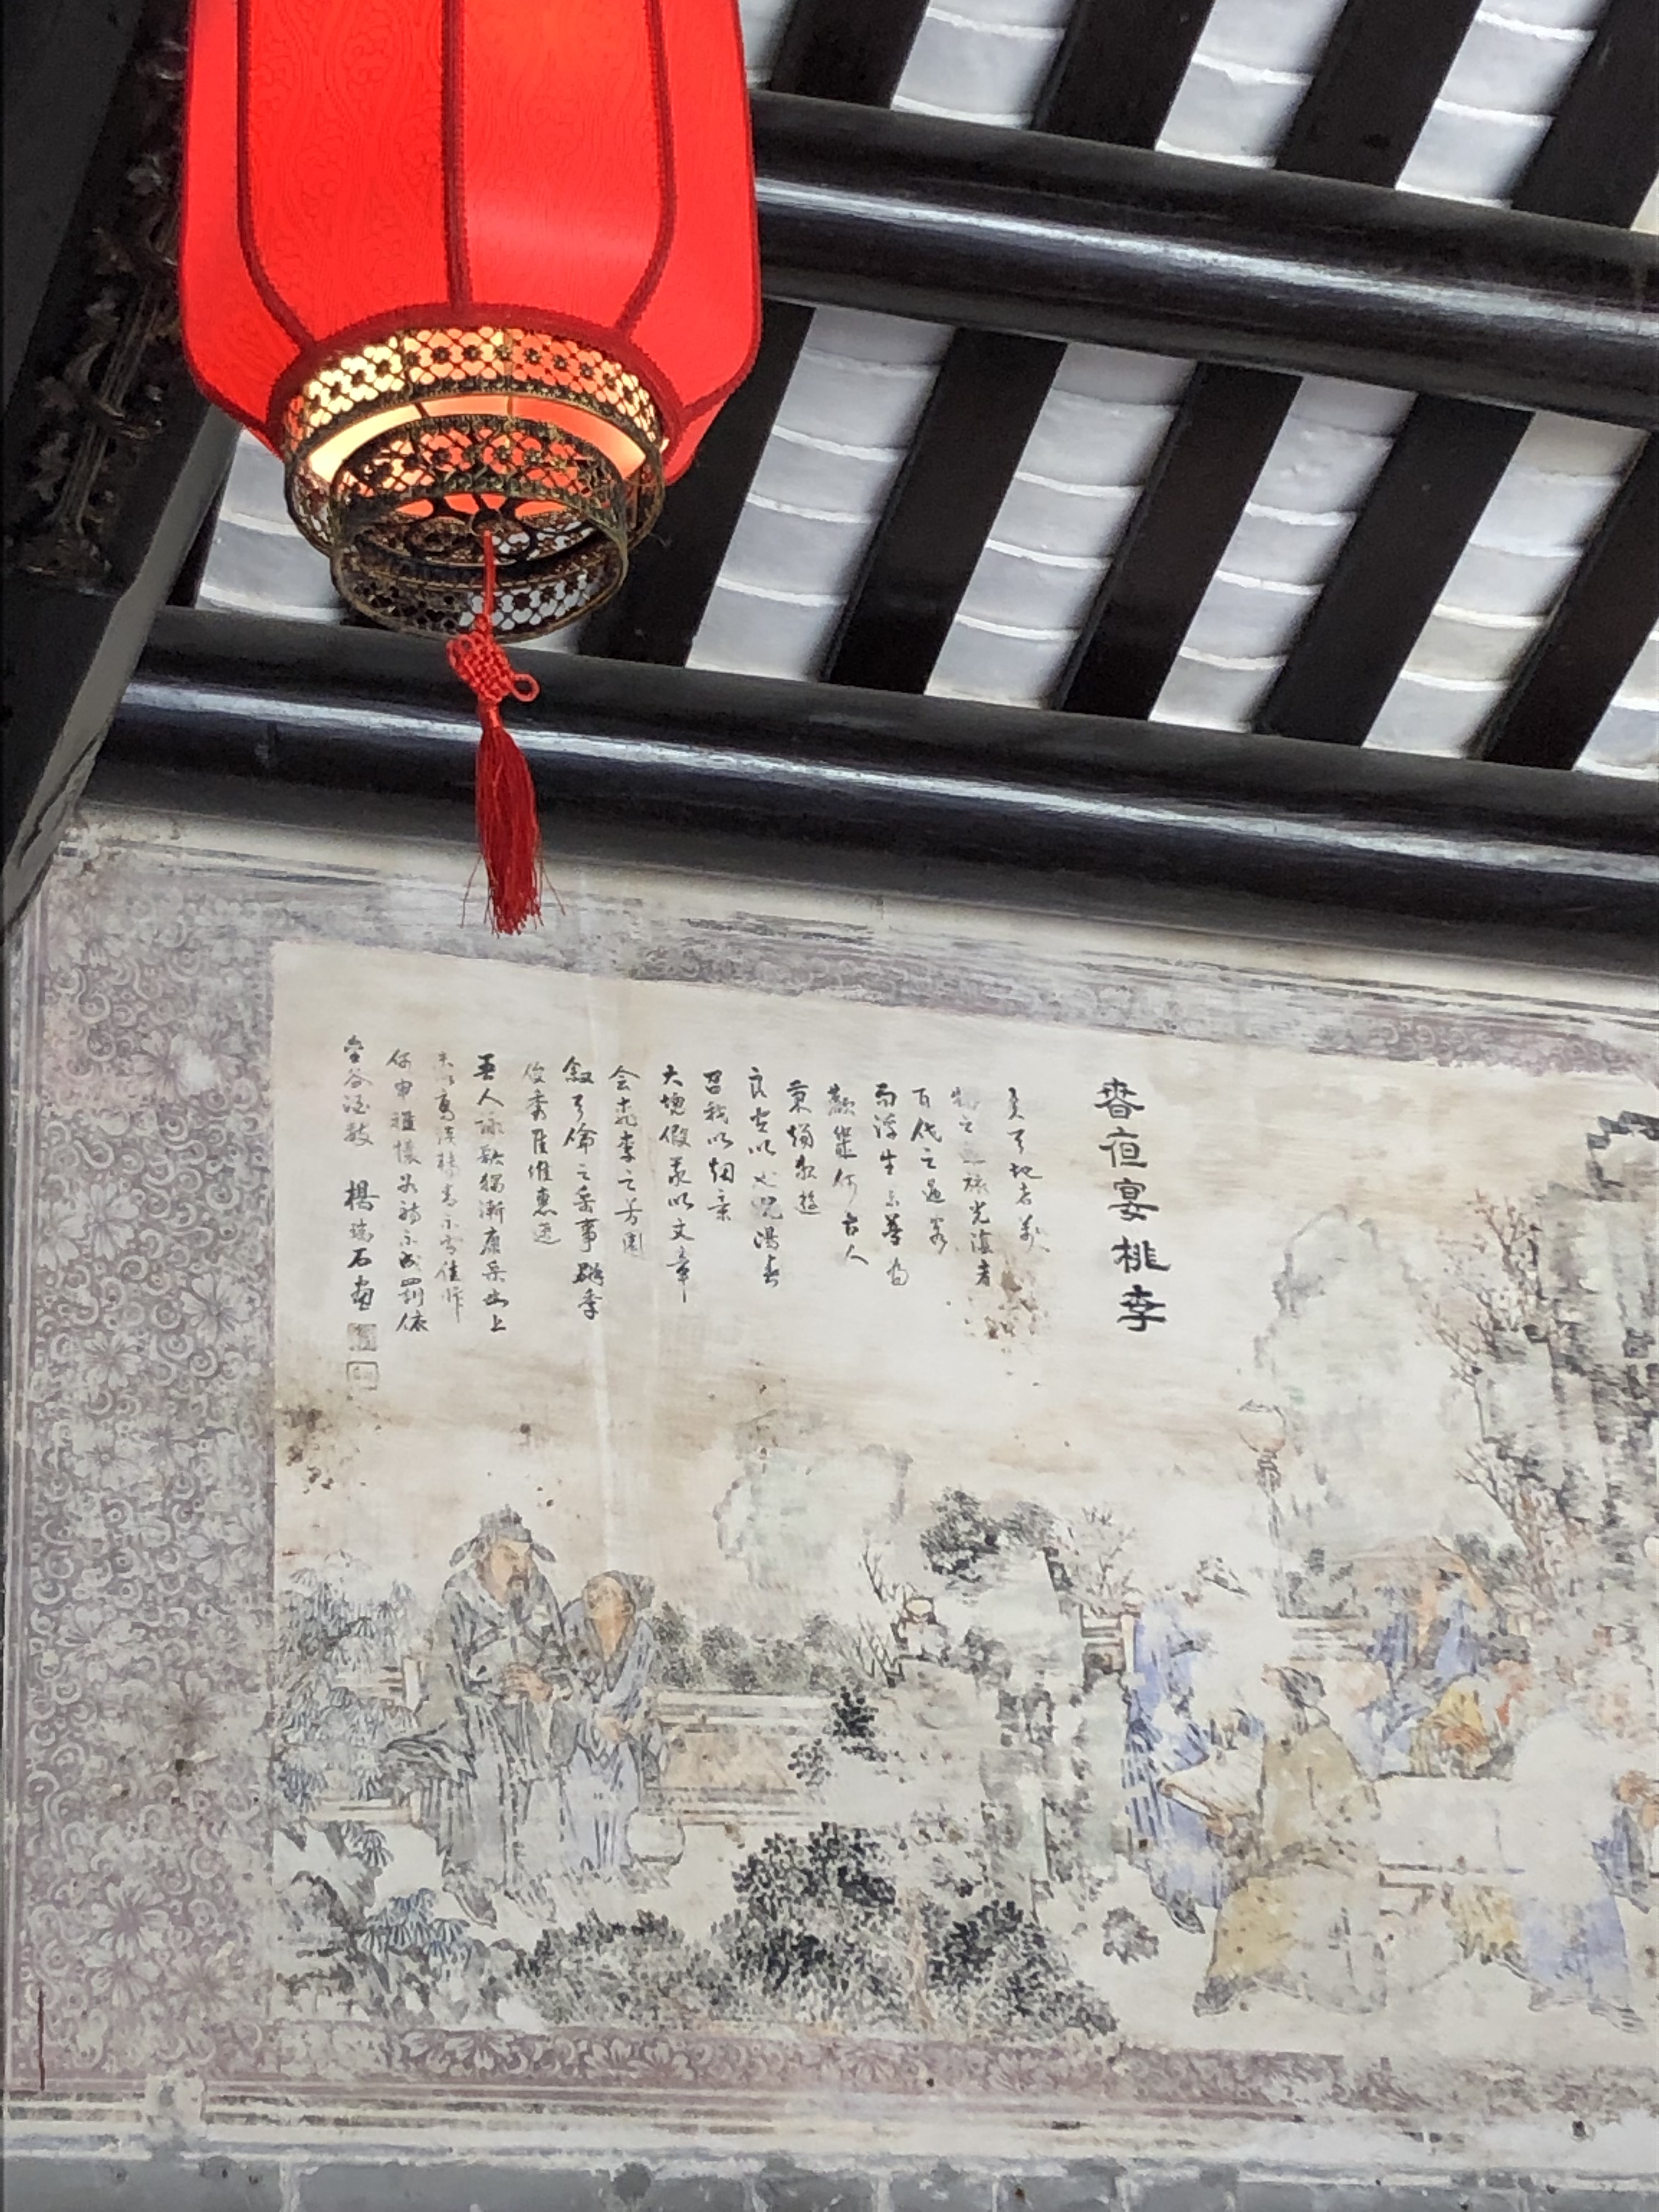 春夜宴桃李
夫天地者萬
物之逆旅光陰者
百代之過客
而浮生若夢為
歡幾何古人
秉燭夜遊
良有以也況陽春
召我以烟景
大塊假我以文章
会桃李之芳園
敘天倫之樂事群季
俊秀惟惠連
吾人詠歌獨慚康樂幽上
未以高談轉清不有佳作
何申雅懷如詩不成罰依
金谷酒數 楊瑞石畫